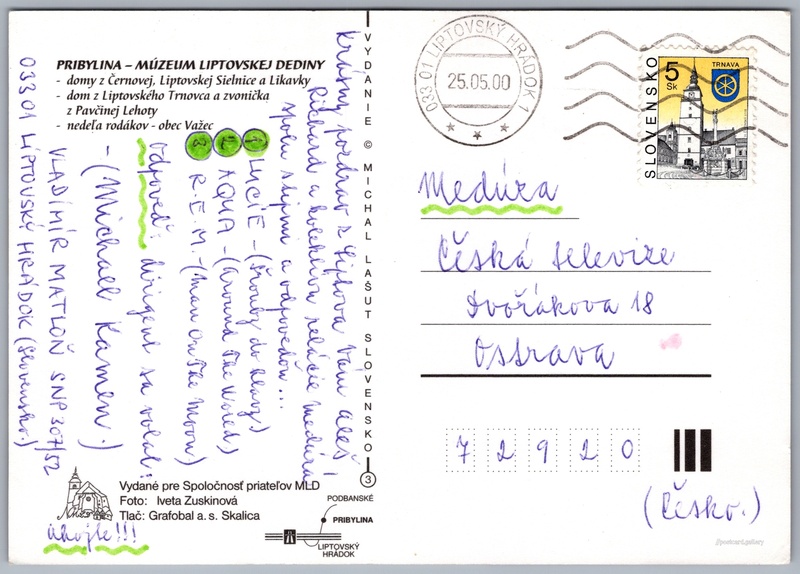 PRIBYLINA – MÚZEUM LIPTOVSKEJ DEDINY
- domy z Černovej, Liptovskej Sielnice a Likavky
- dom z Liptovského Trnovca a zvonička
z Pavčinej Lehoty
- nedeľa rodákov - obec Važec
Krásny pozdrav z Liptova Vám Aleš,
Richard a kolektívu relácie Medúza
spolu s tipmi a odpoveďou...
1 LUCIE - (Šrouby do hlavy)
2 AQUA - (Around The World)
3 R.E.M. - (Man On The Moon)
Odpoveď: dirigent sa volal:
- (Michael Kamen.)
VLADIMÍR MATLOŇ SNP 307/52
033 01 LIPTOVSKÝ HRÁDOK (Slovensko.)
ahojte!!!
Vydané pre Spoločnosť priateľov MLD
Foto: Iveta Zuskinová
Tlač: Grafobal a. s. Skalica
PODBANSKÉ
PRIBYLINA
LIPTOVSKÝ
HRÁDOK
VYDANIE © MICHAL LAŠUT SLOVENSKO
3
033 01 LIPTOVSKÝ HRÁDOK 1
25.05.00
SLOVENSKO
5
Sk
TRNAVA
Medúza
Česká televize
Dvořákova 18
Ostrava
72920
(Česko.)